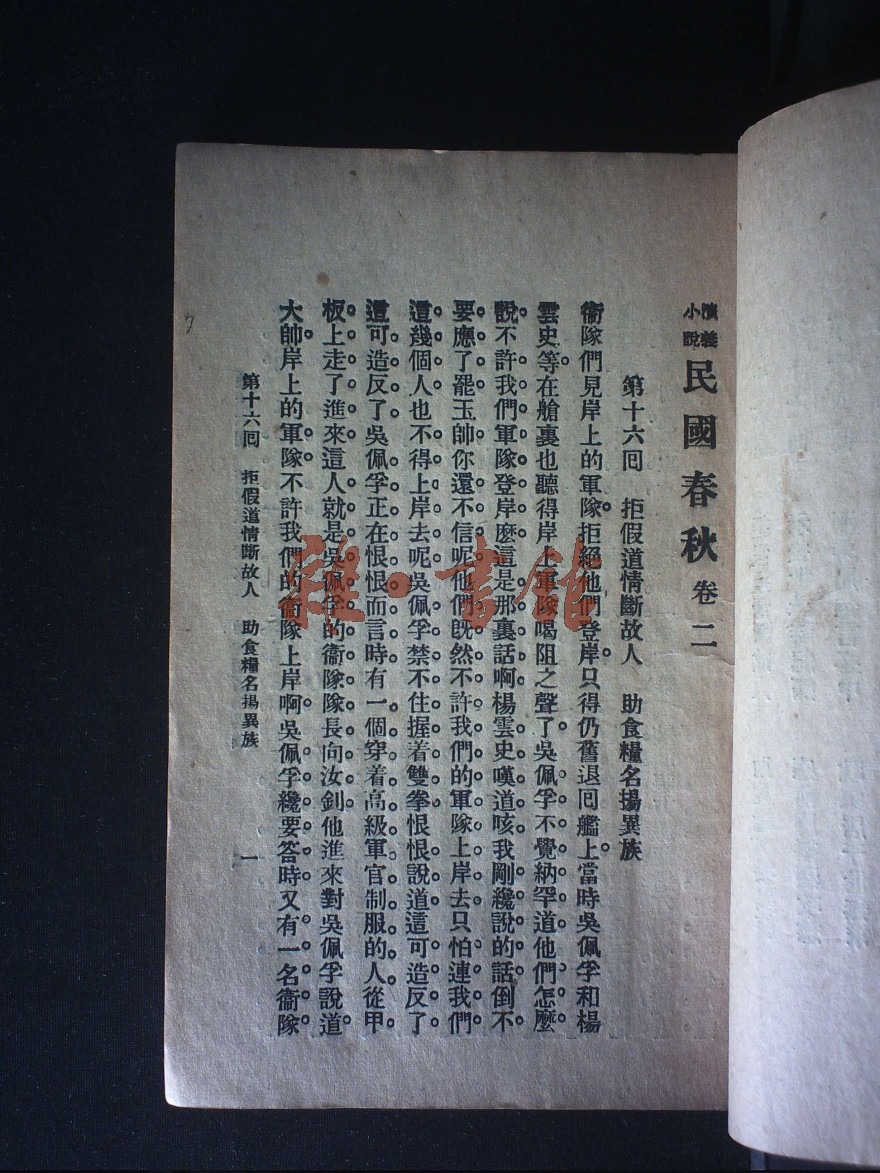 演義小說 民國春秋 卷二
第十六回 拒假道情斷故人 助食糧名揚異族
衞隊們見岸上的軍隊拒絕他們登岸只得仍舊退回艦上當時吳佩孚和楊
雲史等在艙裏也聽得岸上軍隊喝阻之聲了吳佩孚不覺納罕道他們怎麼
說不許我們軍隊登岸麼這是那裏話啊楊雲史嘆道咳我剛纔說的話倒不
要應了罷玉帥你還不信呢他們旣然不許我們的軍隊上岸去只怕連我們
這幾個人也不得上岸去呢吳佩孚禁不住握着雙拳恨恨說道這可造反了
這可造反了吳佩孚正在恨恨而言時有一個穿着高級軍官制服的人從甲
板上走了進來這人就是吳佩孚的衞隊隊長向汝釗他進來對吳佩孚說道
大帥岸上的軍隊不許我們的衞隊上岸啊吳佩孚纔要答時又有一名衞隊
第十六回 拒假道情斷故人 助食糧名揚異族 一
7
雅·書館